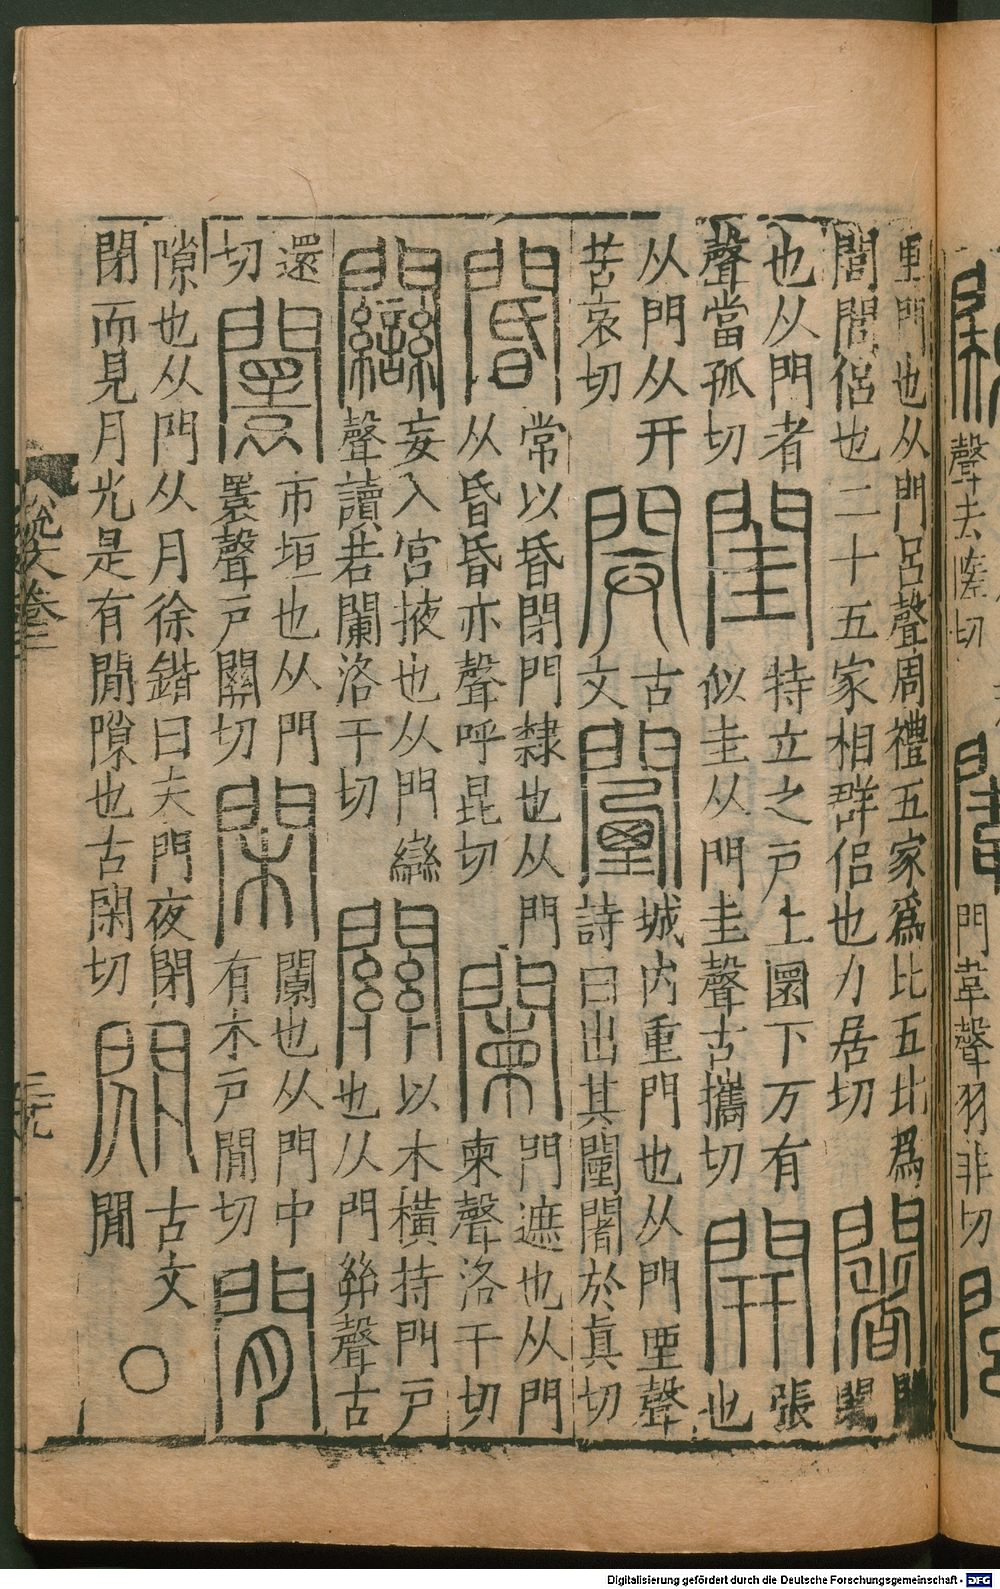 重門也从門呂聲周禮五家爲比五比爲
閭閭侶也二十五家相群侶也力居切
闍
闉
闍
也从門者
聲當孤切
閨
特立之戶上圜下方有
似圭从門圭聲古攜切
開
張
也
从門从开
苦哀切
𨴑
古
文
闉
城内重門也从門垔聲
詩曰出其闉闍於真切
閽
常以昏閉門隸也从門
从昏昏亦聲呼昆切
闌
門遮也从門
柬聲洛干切
𨷻
妄入宮掖也从門䜌
聲讀若闌洛干切
關
以木橫持門戶
也从門𢇇聲古
還
切
闤
市垣也从門
瞏聲戶關切
閑
闌也从門中
有木戶閒切
閒
隙也从門从月徐鍇曰夫門夜閉
閉而見月光是有閒隙也古閑切
古文
閒
門韋聲羽非切
Digitalisierung gefördert durch die Deutsche Forschungsgemeinschaft - DFG